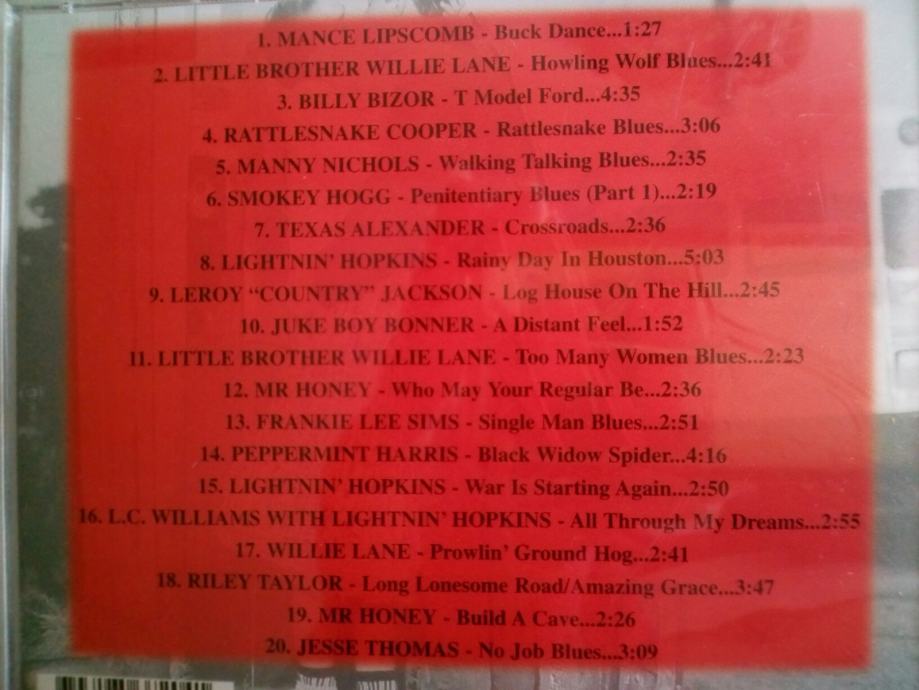 1. MANCE LIPSCOMB - Buck Dance...1:27
2. LITTLE BROTHER WILLIE LANE - Howling Wolf Blues...2:41
3. BILLY BIZOR - T Model Ford...4:35
4. RATTLESNAKE COOPER - Rattlesnake Blues...3:06
5. MANNY NICHOLS - Walking Talking Blues...2:35
6. SMOKEY HOGG - Penitentiary Blues (Part 1)...2:19
7. TEXAS ALEXANDER - Crossroads...2:36
8. LIGHTNIN' HOPKINS - Rainy Day In Houston...5:03
9. LEROY “COUNTRY” JACKSON - Log House On The Hill...2:45
10. JUKE BOY BONNER - A Distant Feel...1:52
11. LITTLE BROTHER WILLIE LANE - Too Many Women Blues...2:23
12. MR HONEY - Who May Your Regular Be...2:36
13. FRANKIE LEE SIMS - Single Man Blues...2:51
14. PEPPERMINT HARRIS - Black Widow Spider...4:16
15. LIGHTNIN' HOPKINS - War Is Starting Again...2:50
16. L.C. WILLIAMS WITH LIGHTNIN' HOPKINS - All Through My Dreams...2:55
17. WILLIE LANE - Prowlin' Ground Hog...2:41
18. RILEY TAYLOR - Long Lonesome Road/Amazing Grace...3:47
19. MR HONEY - Build A Cave...2:26
20. JESSE THOMAS - No Job Blues...3:09